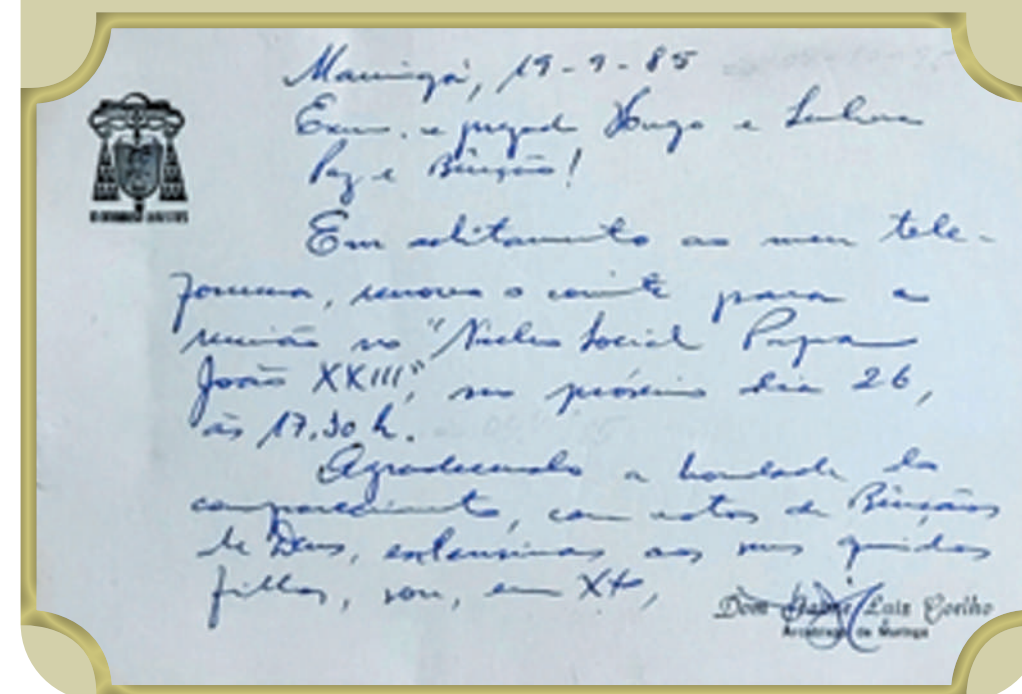 Maringá, 19-9-85
Exmo. e prezado Hugo e Senhora
Paz e Bênção!
Em aditamento ao meu tele-
fonema, renovo o convite para a
reunião no "Núcleo Social Papa
João XXIII", no próximo dia 26,
às 17.30 h.
Agradecendo a bondade do
comparecimento, com votos de Bênçãos
de Deus, extensivas aos seus queridos
filhos, sou, em X+,
Dom Jaime Luiz Coelho
Arcebispo de Maringá